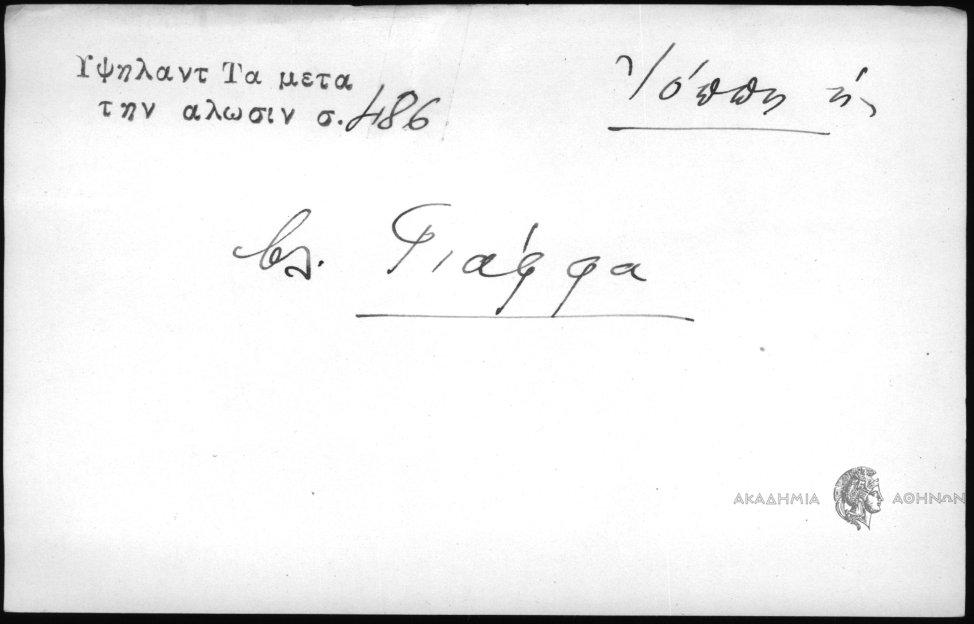 Υψηλαντ Τα μετα
την αλωσιν σ. 486
Ἰόππη ἡ
βλ. Γιάφφα
ΑΚΑΔΗΜΙΑ ΑΘΗΝΩΝ